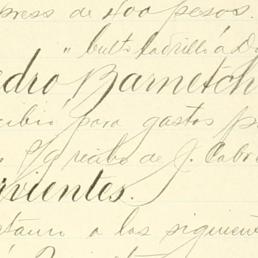 press de 400 pesos.
" bulto ladrillo á D
edro Barnetch
cibió para gastos p
S/g recibo de J. Cabr
rvientes.
staura a los siguient